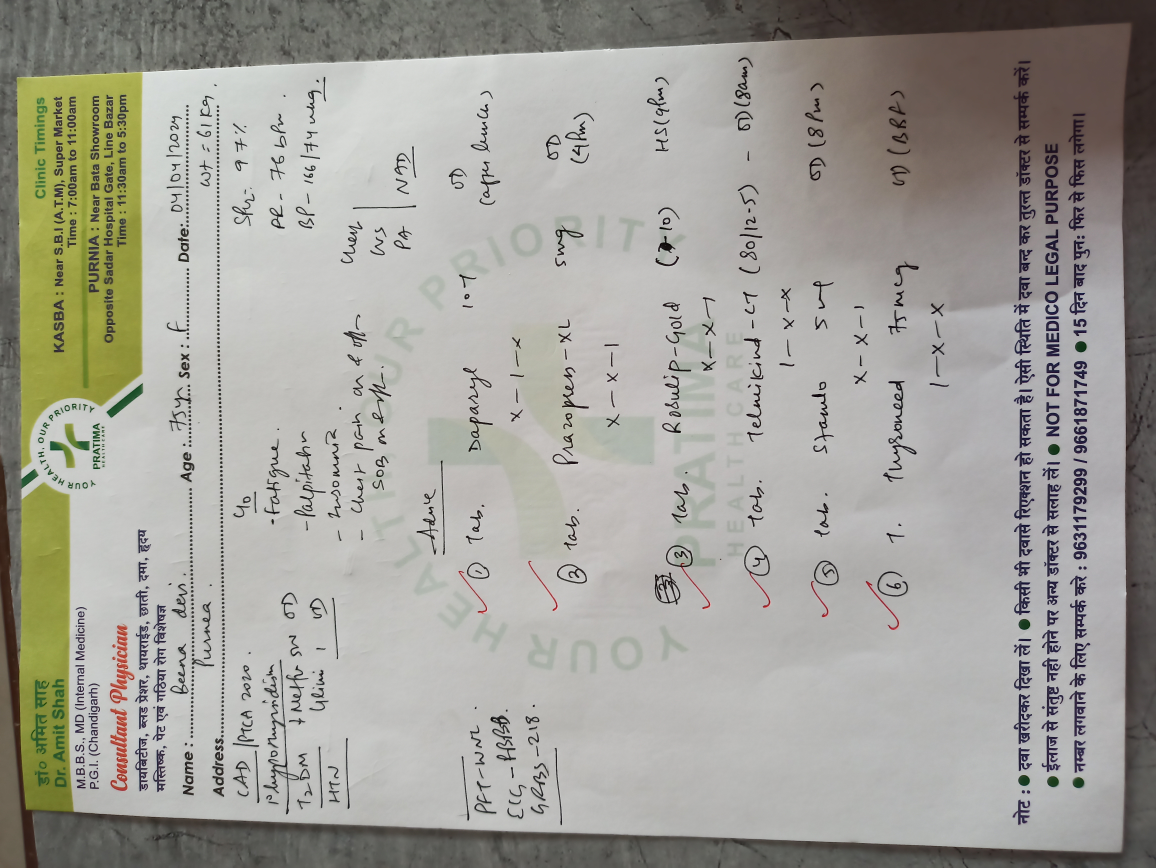 डॉ० अमित साह
Dr. Amit Shah
M.B.B.S., MD (Internal Medicine)
P.G.I. (Chandigarh)
Consultant Physician
डायबिटीज, ब्लड प्रेशर, थायराईड, छाती, दमा, हृदय
मस्तिष्क, पेट एवं गठिया रोग विशेषज्ञ
YOUR HEALTH, OUR PRIORITY
PRATIMA
HEALTH CARE
Clinic Timings
KASBA : Near S.B.I (A.T.M), Super Market
Time : 7:00am to 11:00am
PURNIA : Near Bata Showroom
Opposite Sadar Hospital Gate, Line Bazar
Time : 11:30am to 5:30pm
Name : Beena devi Age : 75yr Sex : F Date: 04/04/2024
Address Purnea. Wt = 61 Kg.
CAD | PTCA 2020.
Hypothyroidism
T2DM
HTN
C/o
- Fatigue.
- Palpitation
- Insomnia.
- Chest pain on & off
SOB on
SPO2: 97%
PR - 76 bpm.
BP - 166/74 mmHg.
Chest
CVS
PA
NAD
PFT - WNL.
ECG -
GRBS - 218.
Advice
① Tab. 10 OD
X - 1 - X (after lunch)
② Tab. Prazopress - XL 5mg OD
X - X - 1 (4Pm)
③ Tab. Rosulip-Gold HS (9Pm)
X - X - 1
④ Tab. Telmikind-CT (80/12.5) - OD (8am)
1 - X - X
⑤ Tab. Stamlo 5 mg OD (8Pm)
X - X - 1
⑥ T. 75mcg OD (BBF)
1 - X - X
YOUR HEALTH, OUR PRIORITY
PRATIMA
HEALTH CARE
नोट : ● दवा खरीदकर दिखा लें। ● किसी भी दवासे रिएक्शन हो सकता है। ऐसी स्थिति में दवा बन्द कर तुरन्त डॉक्टर से सम्पर्क करें।
● ईलाज से संतुष्ट नही होने पर अन्य डॉक्टर से सलाह लें। ● NOT FOR MEDICO LEGAL PURPOSE
● नम्बर लगवाने के लिए सम्पर्क करे : 9631179299 / 9661871749 ● 15 दिन बाद पुन: फिर से फिस लगेगा।